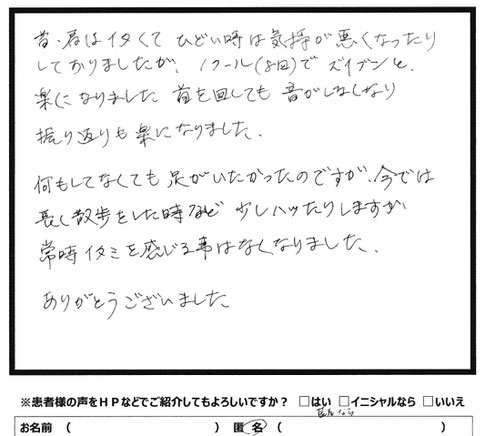 首・肩はイタくて ひどい時は気持が悪くなったり
しておりましたが、1クール(8回)で ズイブンと、
楽になりました 首を回しても 音がしなくなり
振り返りも楽になりました。
何もしてなくても 足がいたかったのですが、今では
長く散歩をした時など 少しハッたりしますが
常時イタミを感じる事はなくなりました。
ありがとうございました
※患者様の声をHPなどでご紹介してもよろしいですか? □はい □イニシャルなら □いいえ
お名前 ( ) 匿名 ( )